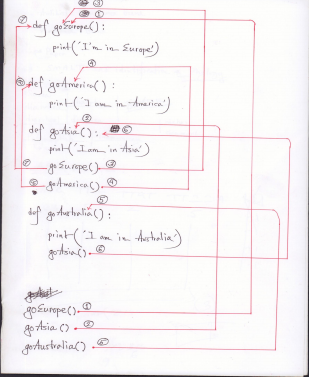 def goEurope():
print('I'm in Europe')
def goAmerica():
print('I am in America')
def goAsia():
print('I am in Asia')
goEurope()
goAmerica()
def goAustralia():
print('I am in Australia')
goAsia()
goEurope()
goAsia()
goAustralia()